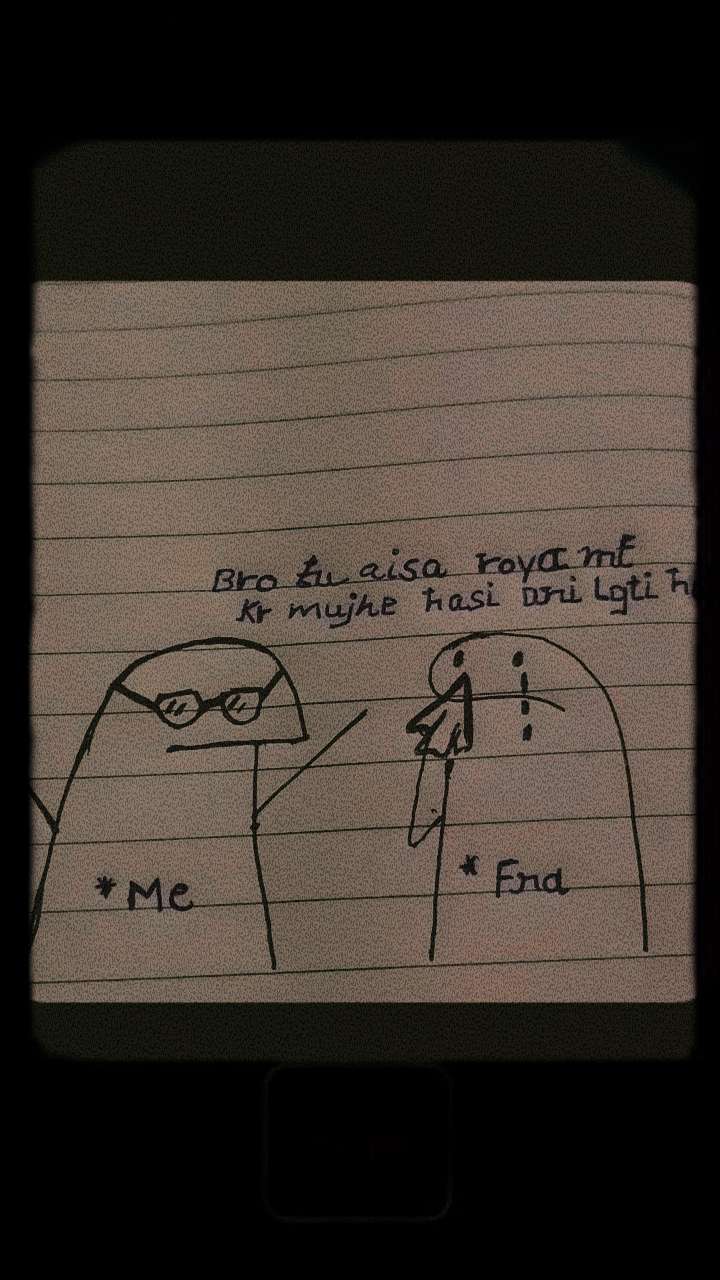 Bro tu aisa roya mt
Kr mujhe hasi ani Lgti h
* Me
* Frnd